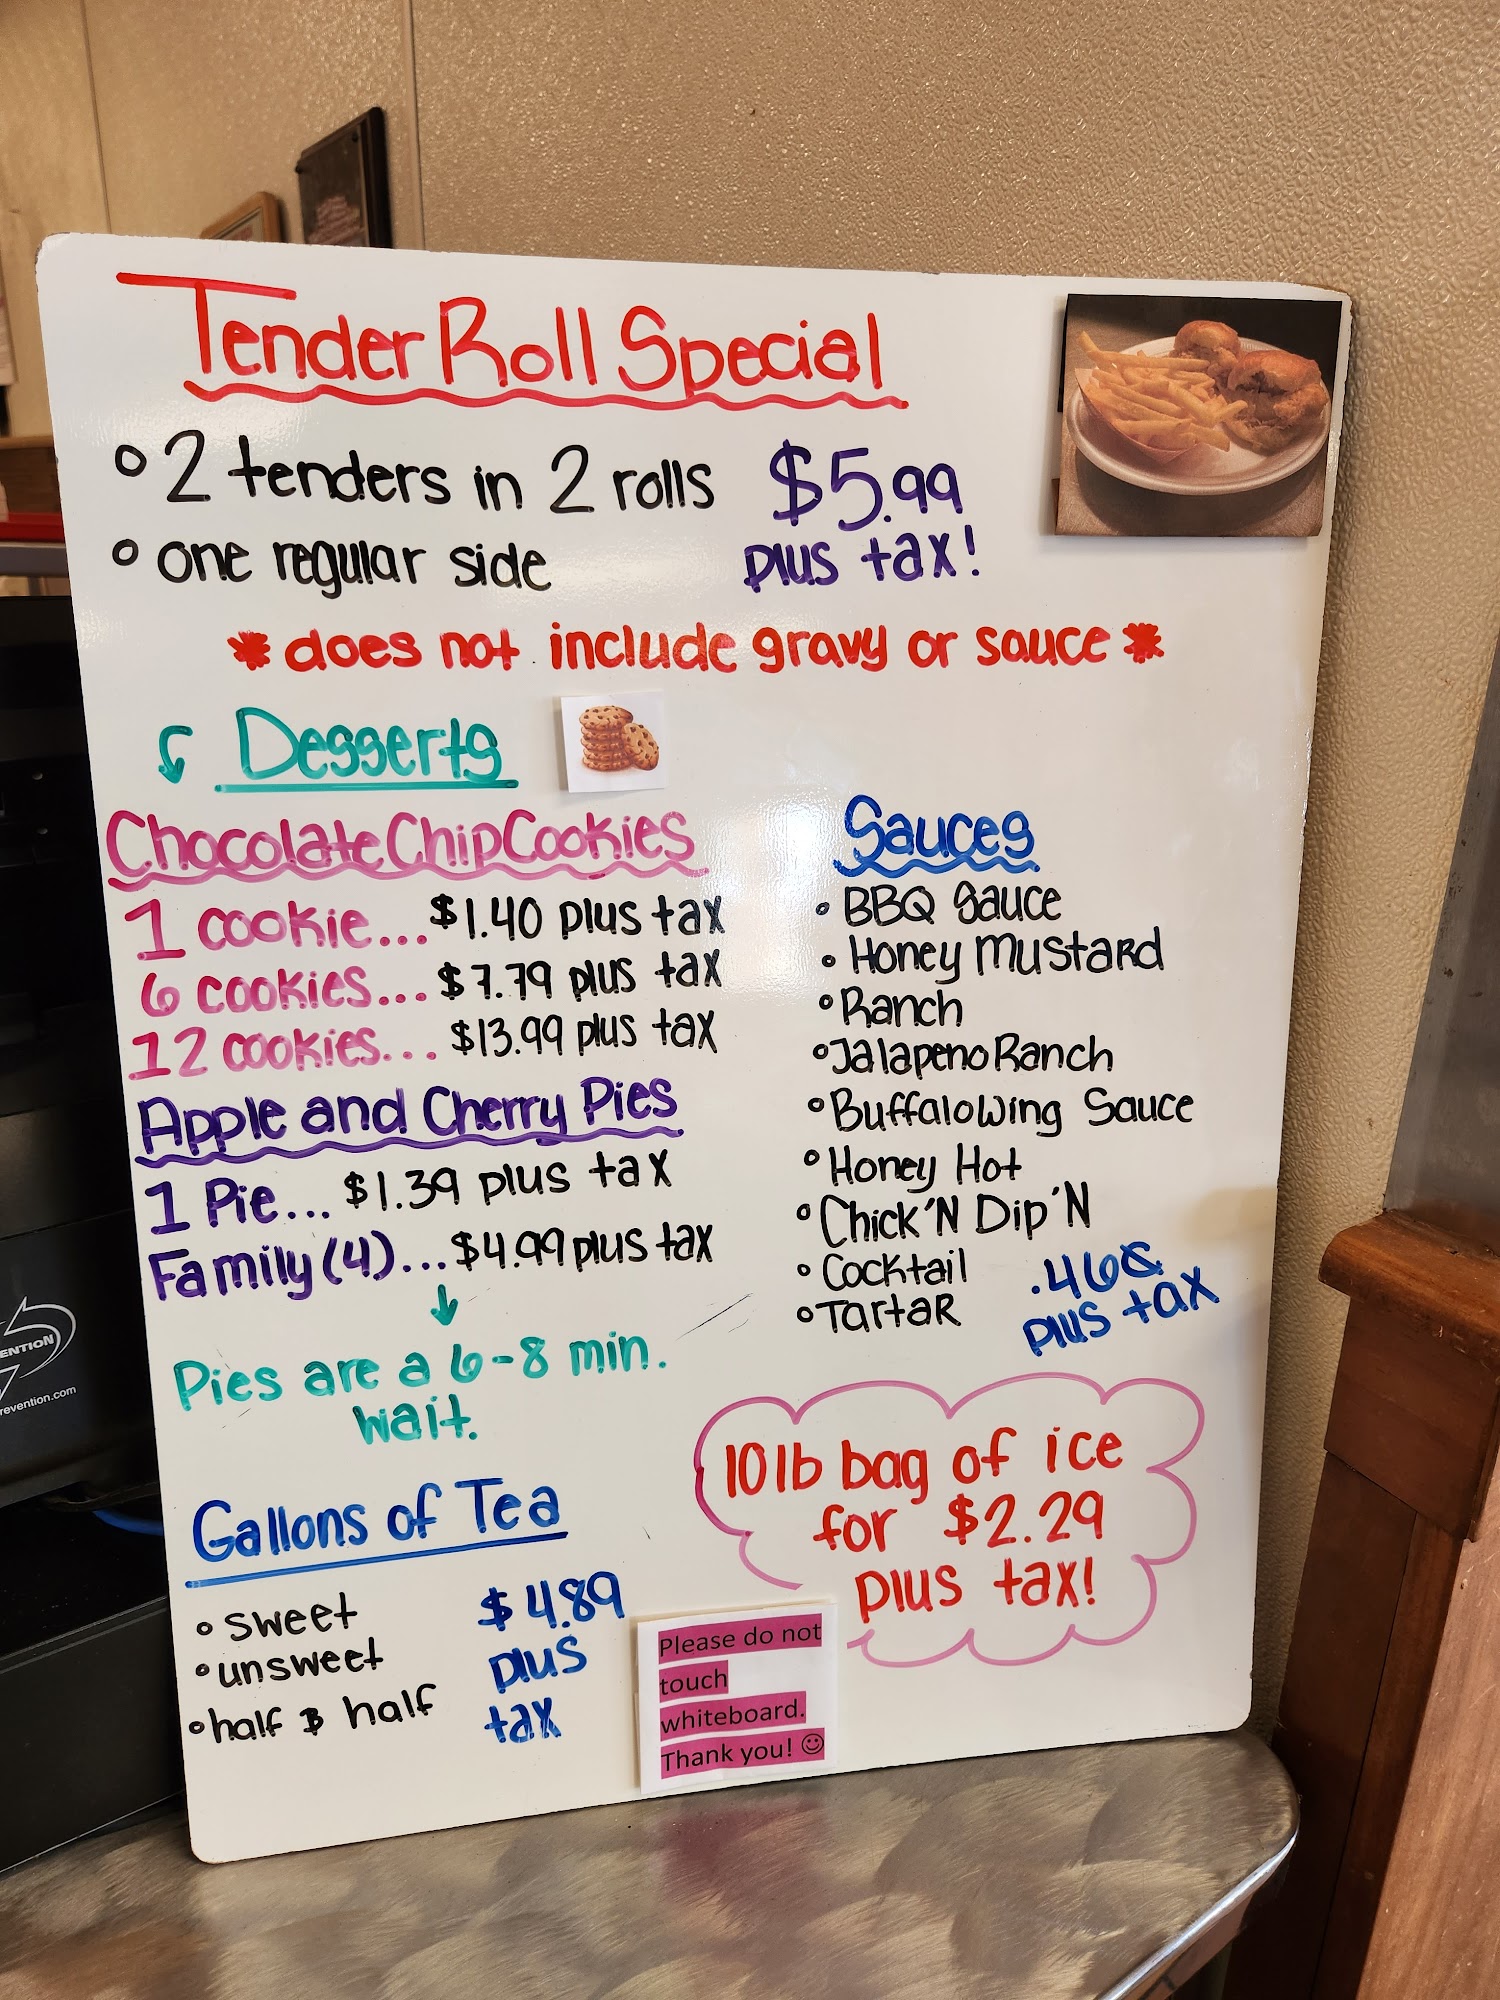 Tender Roll Special
° 2 tenders in 2 rolls
° one regular side
$5.99
plus tax!
* does not include gravy or sauce *
Desserts
Chocolate Chip Cookies
1 cookie... $1.40 plus tax
6 cookies... $7.79 plus tax
12 cookies... $13.99 plus tax
Apple and Cherry Pies
1 Pie... $1.39 plus tax
Family (4)... $4.99 plus tax
Pies are a 6-8 min.
wait.
Sauces
° BBQ Sauce
° Honey Mustard
° Ranch
° Jalapeno Ranch
° Buffalo Wing Sauce
° Honey Hot
° Chick'N Dip'N
° Cocktail
° Tartar
.46¢
plus tax
10 lb bag of ice
for $2.29
plus tax!
Gallons of Tea
° sweet
° unsweet
° half & half
$4.89
plus
tax
Please do not
touch
whiteboard.
Thank you! ☺
revention.com